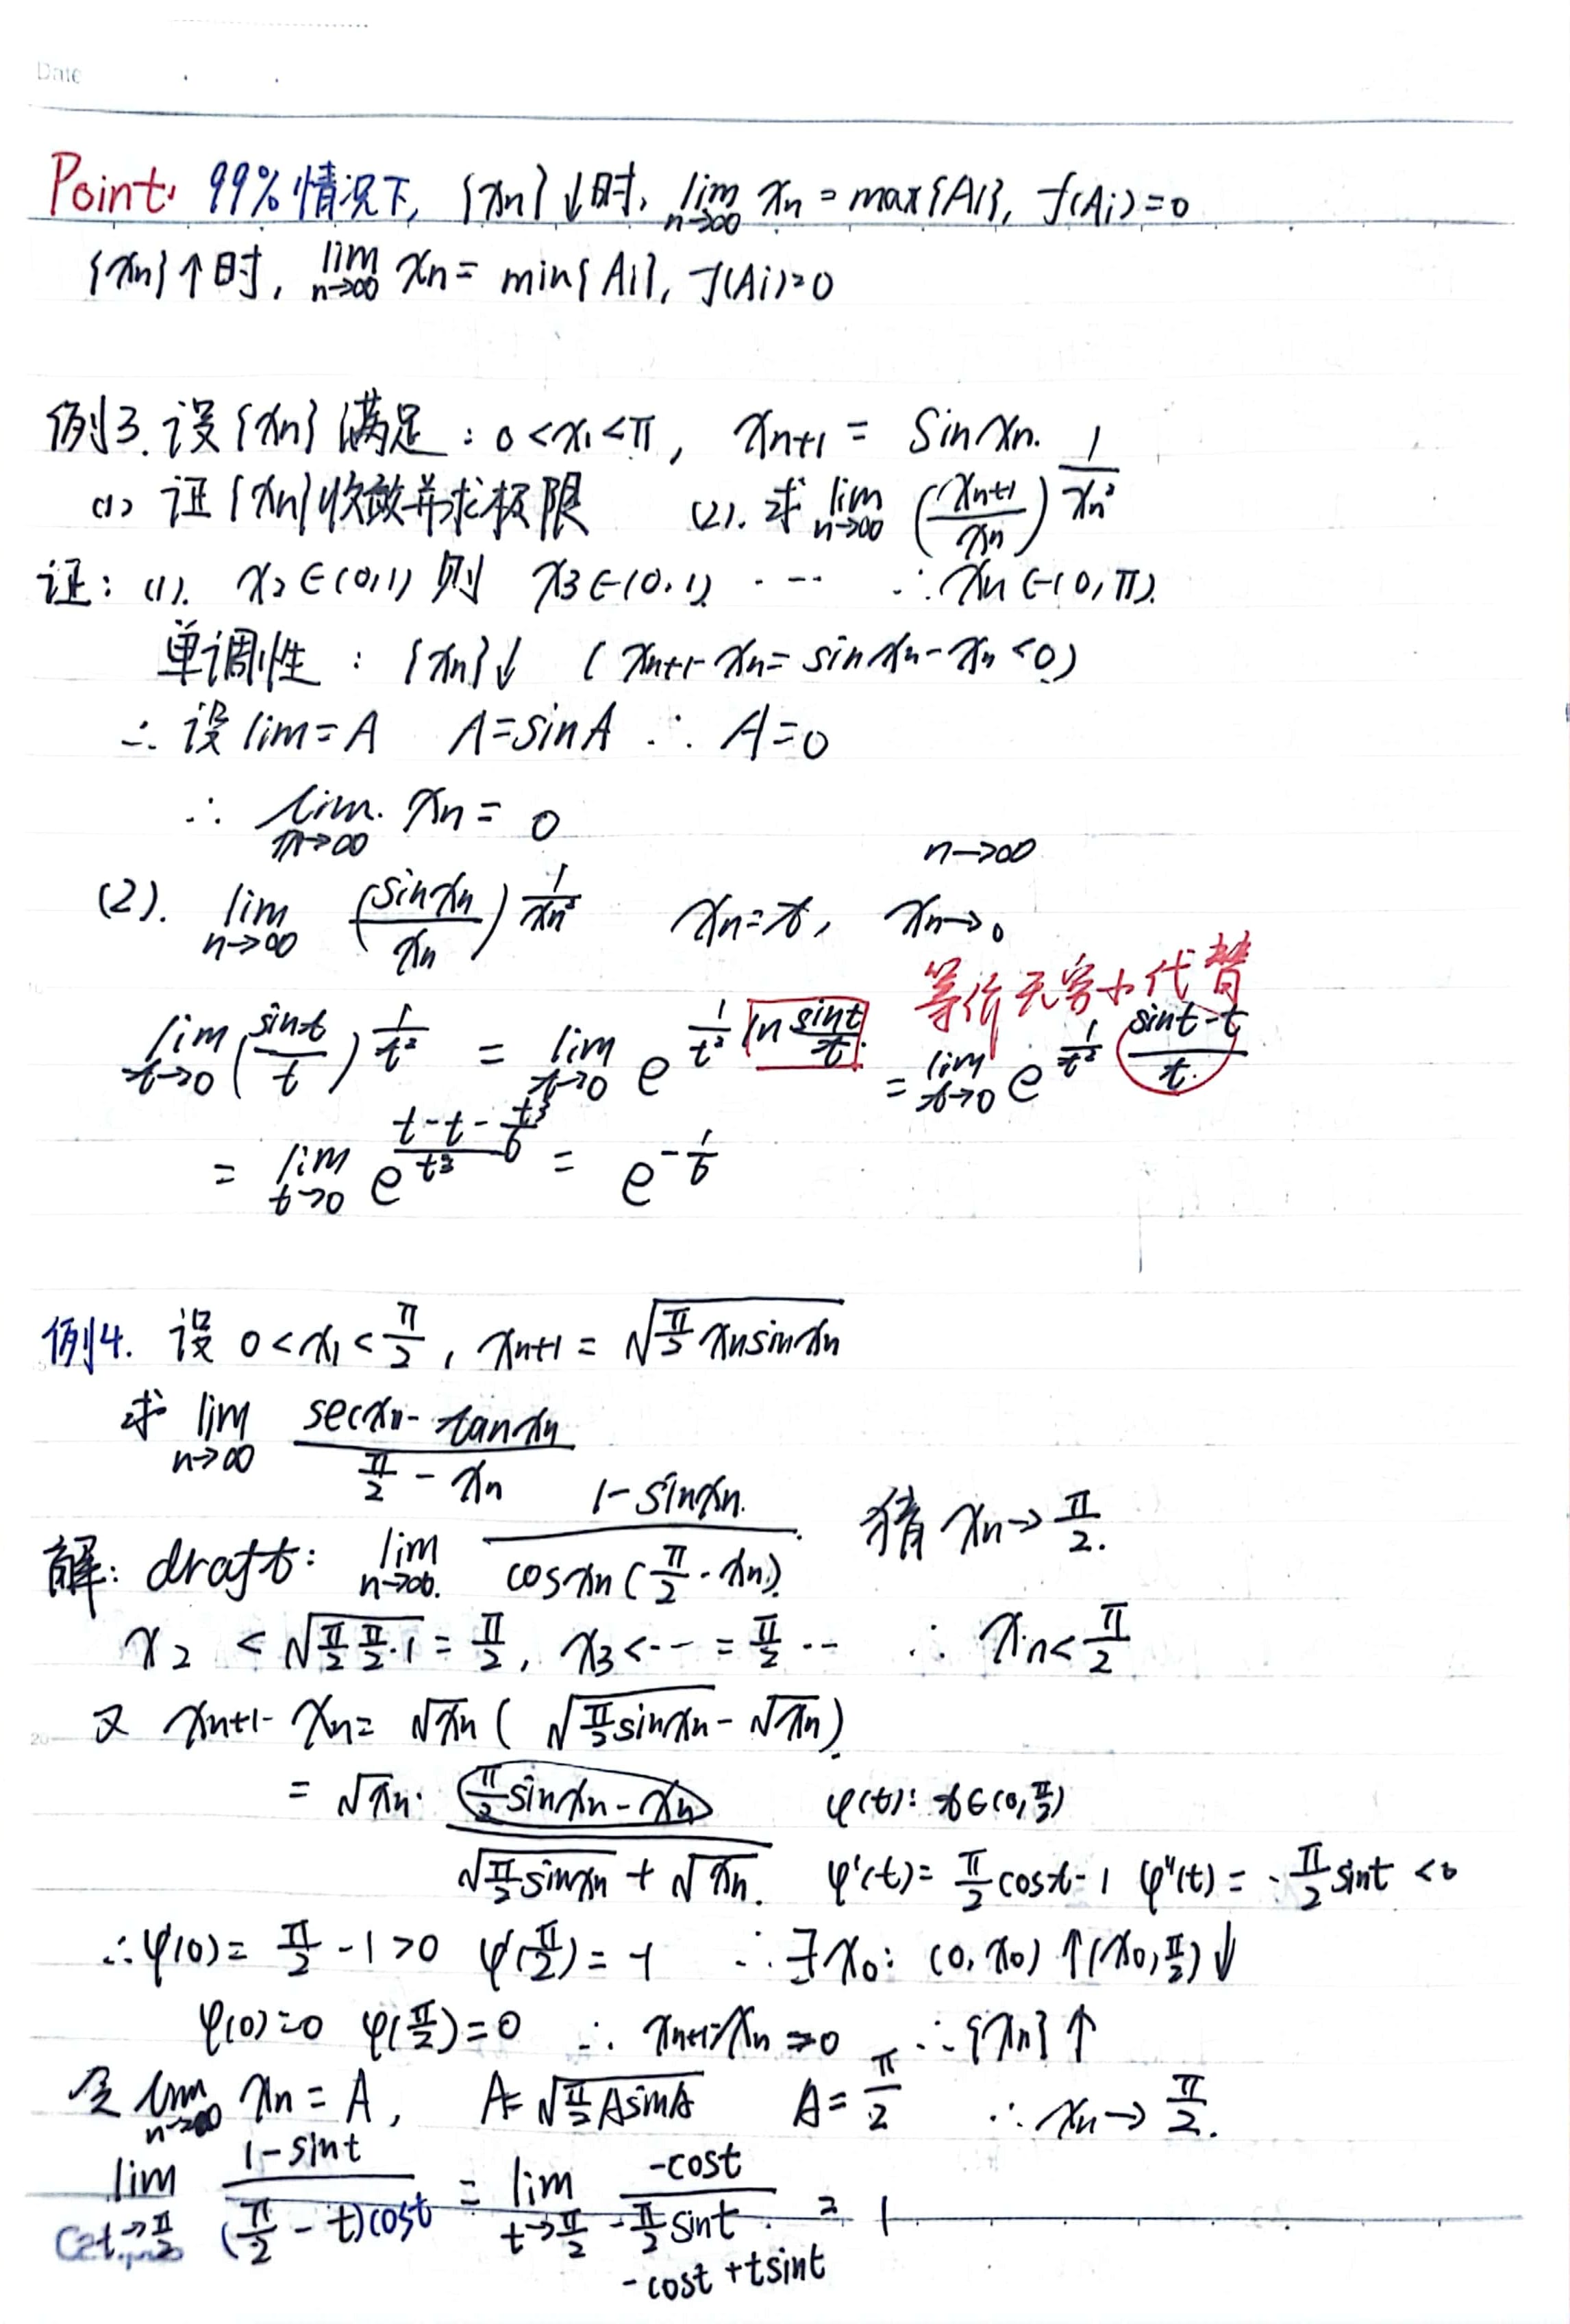 Date
Point: 99%情况下, {xn}↓时, lim n→∞ xn = max{Ai}, f(Ai)=0
{xn}↑时, lim n→∞ xn = min{Ai}, f(Ai)=0
例3. 设{xn}满足: 0<x₁<π, xn+1 = sinxn.
(1) 证{xn}收敛并求极限 (2). 求 lim n→∞ (xn+1/xn)^(1/xn²)
证: (1). x₂∈(0,1) 则 x3∈(0,1) ··· ∴xn∈(0,π).
单调性: {xn}↓ (xn+1-xn=sinxn-xn<0)
∴ 设lim=A A=sinA ∴ A=0
∴ lim n→∞ xn = 0
(2). lim n→∞ (sinxn/xn)^(1/xn²) xn=t, n→∞ xn→0
等价无穷小代替
lim t→0 (sint/t)^(1/t²) = lim t→0 e^(1/t² ln sint/t) = lim t→0 e^(1/t² (sint-t)/t)
= lim t→0 e^((t-t-t³/6)/t³) = e^(-1/6)
例4. 设 0<x₁<π/2, xn+1 = √(π/2 xnsinxn)
求 lim n→∞ (secxn-tanxn)/(π/2-xn)
解: draft: lim n→∞. (1-sinxn.)/(cosxn(π/2-xn)). 猜 xn→π/2.
x₂ < √(π/2 π/2·1) = π/2, x3<-- = π/2 ·-- ∴ xn<π/2
又 xn+1-xn= √xn ( √(π/2 sinxn) - √xn ).
= √xn· (π/2 sinxn-xn)/(√(π/2 sinxn) + √xn.) φ(t): t∈(0,π/2)
φ'(t)= π/2 cost-1 φ''(t)= -π/2 sint <0
∴φ'(0)= π/2 -1>0 φ'(π/2)=-1 ∴∃x₀: (0,x₀)↑(x₀,π/2)↓
φ(0)=0 φ(π/2)=0 ∴ xn+1-xn >0 ∴{xn}↑
令 lim n→∞ xn = A, A=√(π/2 AsinA) A=π/2 ∴ xn→π/2.
lim t→π/2 (1-sint)/((π/2-t)cost) = lim t→π/2 (-cost)/(-π/2 sint -cost+tsint) = 1